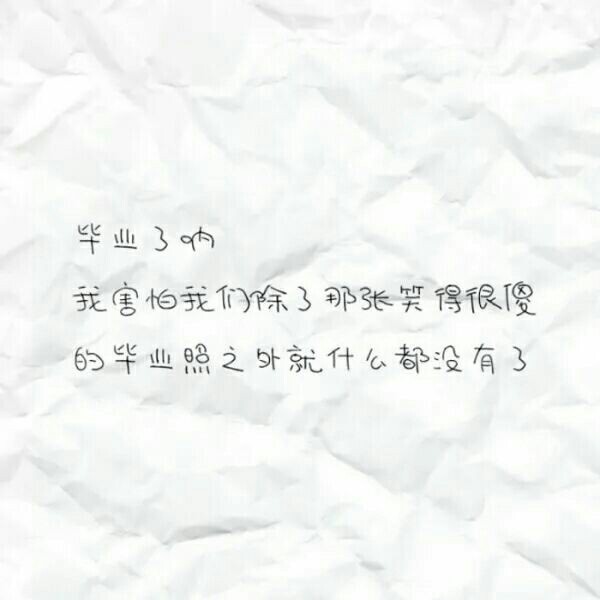 毕业了呐
我害怕我们除了那张笑得很傻
的毕业照之外就什么都没有了